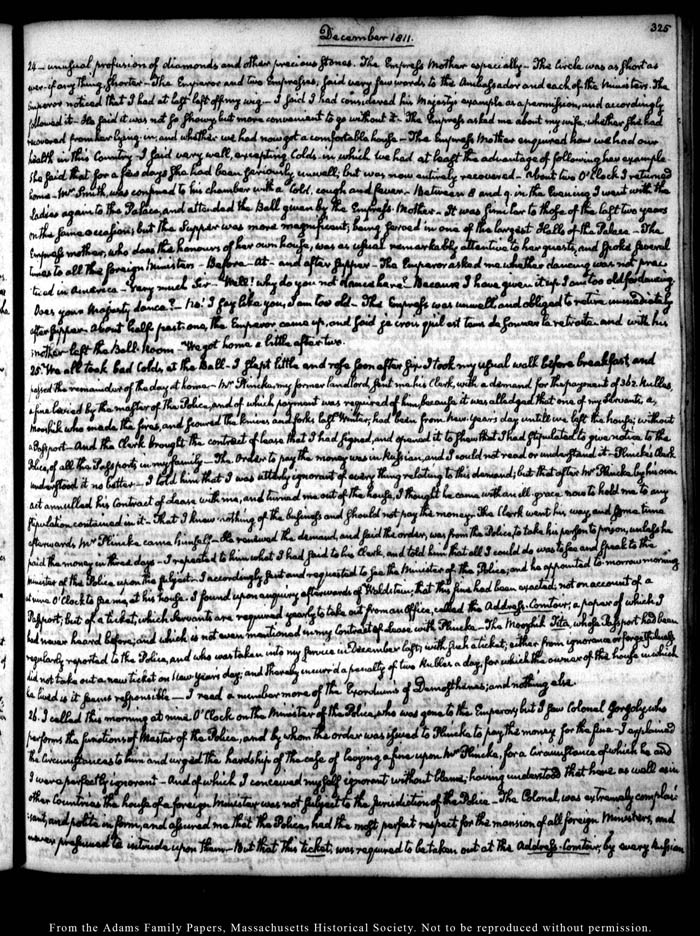 325
December 1811.
24 – unusual profusion of diamonds and other precious stones. The Empress Mother especially – The Circle was as short as
ever, if any thing, shorter – The Emperor and two Empresses, said very few words to the Ambassador and each of the Ministers. The
Emperor noticed that I had at last left off my wig – I said I had considered his Majesty's example as a permission, and accordingly
followed it – He said it was not so showy, but more convenient to go without it – The Empress asked me about my wife, whether she had
recovered from her lying-in; and whether we had now got a comfortable house – The Empress Mother enquired how we had our
health in this Country – I said very well, excepting Colds – in which we had at least the advantage of following her example
She said that for a few days she had been seriously unwell, but was now entirely recovered – about two O'Clock I returned
home – Mr Smith, was confined to his chamber with a Cold, cough and fever – Between 8 and 9. in the Evening I went with the
Ladies again to the Palace, and attended the Ball given by the Empress Mother – It was similar to those of the last two years
on the same occasion; but the Supper was more magnificent; being served in one of the largest Halls of the Palace – The
Empress mother, who does the honours of her own house, was as usual remarkably attentive to her guests, and spoke several
times to all the foreign Ministers – Before – At – and after Supper – The Emperor asked me whether dancing was not prac-
-ticed in America – Very much Sir – Well! why do you not dance here? Because I have given it up I am too old for dancing
Does your Majesty dance? No! I say like you, I am too old – The Empress was unwell and obliged to retire immediately
after Supper – About half past one, the Emperor came up, and said je crois qu'il est tems de sonner la retraite – and with his
mother left the Ball-Room – We got home a little after two.
25. We all took bad Colds, at the Ball – I slept little and rose soon after six. I took my usual walk before breakfast, and
passed the remainder of the day at home – Mr Plincke, my former landlord, sent me his Clerk, with a demand for the payment of 362. Rubles,
a fine levied by the master of the Police, and of which payment was required of him, because it was alledged that one of my Servants, a
Mooshik who made the fires, and scoured the knives and forks last Winter, had been from New years day untill we left the house, without
a Passport – And the Clerk brought the contract of lease that I had signed, and opened it to shew that I had stipulated to give notice to the
Police, of all the Passports in my family – The Order to pay the money was in Russian, and I could not read or understand it – Plincke's Clerk
understood it no better – I told him that I was utterly ignorant of every thing relating to this demand; but that after Mr Plincke, by his own
act annulled his Contract of lease with me, and turned me out of the house, I thought he came with an ill-grace now to hold me to any
stipulation contained in it – That I knew nothing of the business and should not pay the money – The Clerk went his way, and some time
afterwards Mr Plincke came himself – He renewed the demand, and said the order, was from the Police, to take his person to prison, unless he
paid the money in three days – I repeated to him what I had said to his Clerk, and told him that all I could do was to see and speak to the
minister of the Police upon the subject – I accordingly sent and requested to see the Minister of the Police; and he appointed to-morrow morning
at nine O'Clock to see me, at his house. I found upon enquiry afterwards of Waldstein, that this fine had been exacted, not on account of a
Passport; but of a ticket, which Servants are required yearly to take out from an Office, called the Address-Comtoir, a paper of which I
had never heard before; and which is not even mentioned in my Contract of lease with Plincke – The Mooshik Tita, whose Passport had been
regularly reported to the Police, and who was taken into my service in December last, with such a ticket, either from ignorance or forgetfulness
did not take out a new ticket on New years day, and thereby incurr'd a penalty of two Rubles a day, for which the owner of the house in which
he lived is it seems responsible – I read a number more of the Exordiums of Demosthenes; and nothing else.
26. I called this morning at nine O'Clock on the Minister of the Police, who was gone to the Emperor; but I saw Colonel Gorgoly, who
performs the functions of Master of the Police, and by whom the order was issued to Plincke to pay the money for the fine – I explained
the circumstances to him and urged the hardship of the case of levying a fine upon Mr Plincke, for a circumstance of which he and
I were perfectly ignorant – And of which I conceived myself ignorant without blame; having understood that here as well as in
other Countries the house of a foreign Minister was not subject to the Jurisdiction of the Police – The Colonel, was extremely complai-
-sant, and polite in form, and assured me that the Police, had the most perfect respect for the mansion of all foreign Ministers, and
never presumed to intrude upon them – But that this ticket, was required to be taken out at the Address-Comtoir, by every Russian
From the Adams Family Papers, Massachusetts Historical Society. Not to be reproduced without permission.